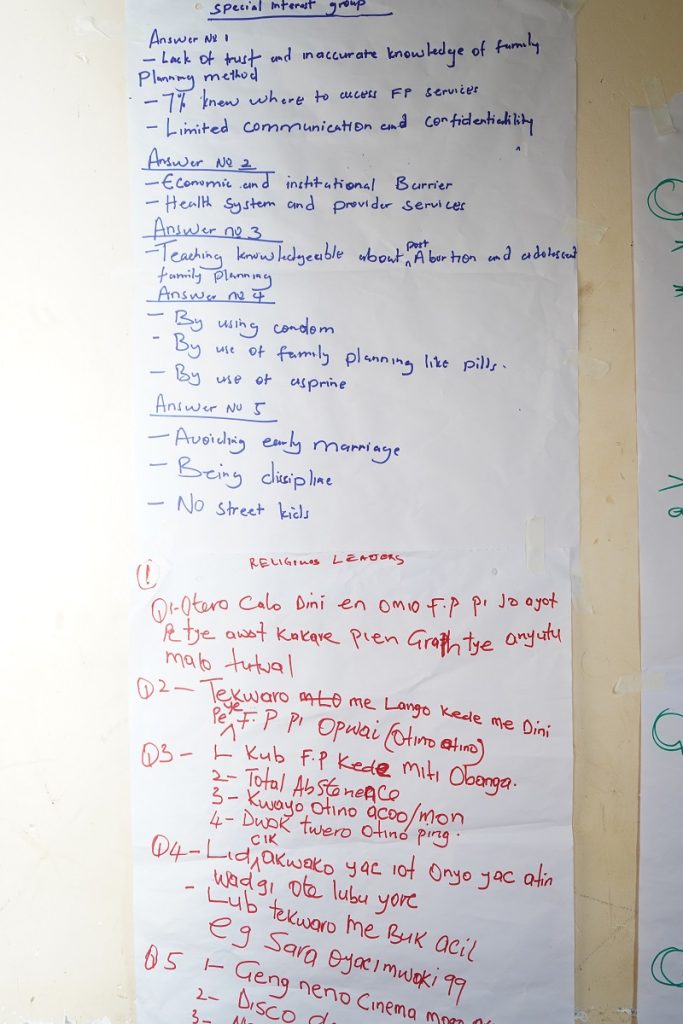 special interest group
Answer No 1
- Lack of trust and inaccurate knowledge of family
Planning method
- 7% knew where to access FP services
- Limited communication and confidentiality
Answer No 2
- Economic and institational Barrier
- Health System and provider services
Answer no 3
- Teaching knowledgeable about post Abortion and adolescent
family planning
Answer no 4
- By using condom
- By use of family planning like pills.
- By use of asprine
Answer No 5
- Avoiding early marriage
- Being discipline
- No street kids
RELIGIOUS LEADERS
!
Q1-Otero Calo Dini en omio F.P pi Jo ayot
Pe tye awot Kakare pien Graph tye anyutu
malo tutwal
Q2 - Tekwaro me Lango Kede me Dini
Pe ye F.P pi Opwai (Otino atino)
Q3 - 1- Kub F.P Kede miti Obanga.
2- Total Abstenence
3- Kwayo Otino acoo/mon
4- Dwok twero Otino ping.
Q4 - Lid cik akwako yac iot Onyo yac atin
- wadgi ote lubu yore
- Lub tekwaro me Buk acil
eg Sara Oyac imwaki 99
Q5 1- Geng neno Cinema
2- Disco
3-